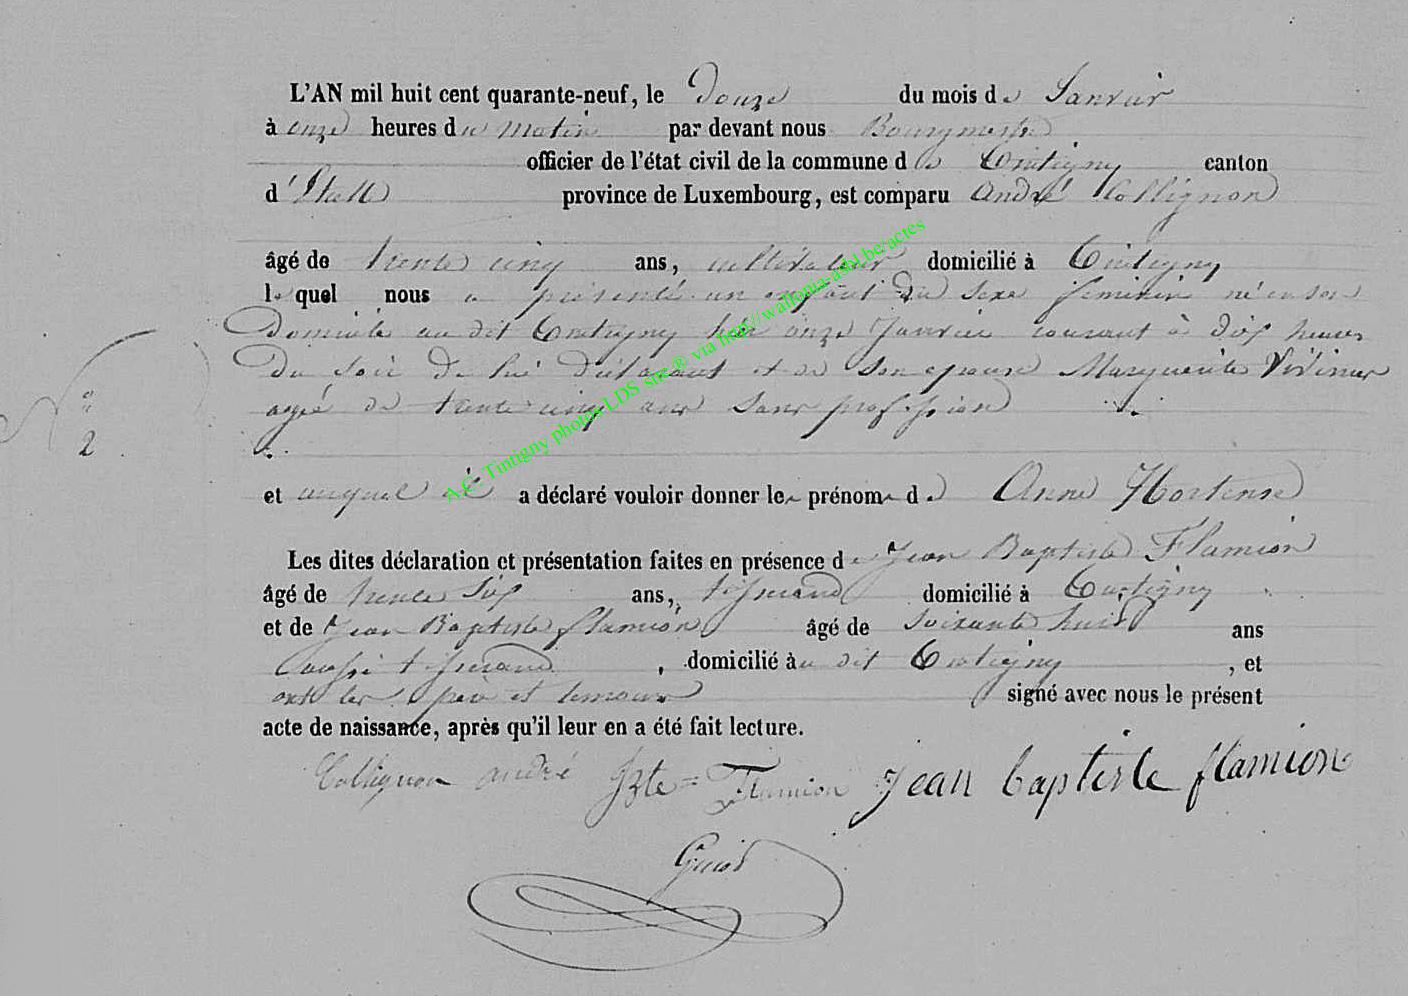 L'AN mil huit cent quarante-neuf, le Douze du mois de Janvier
à onze heures du Matin par devant nous Bourgmestre
officier de l'état civil de la commune de Tintigny canton
d'Etalle province de Luxembourg, est comparu André Collignon
âgé de trente cinq ans, cultivateur domicilié à Tintigny
lequel nous a présenté un enfant du sexe feminin né en son
Domicile au dit Tintigny hier onze Janvier courant à dix heures
Du soir De lui Déclarant et de son epouse Marguerite
agée de trente cinq ans sans profession
N° 2
et auquel il a déclaré vouloir donner les prénoms de Anne Hortense
Les dites déclaration et présentation faites en présence de Jean Baptiste Flamion
âgé de trente Six ans, tisserand domicilié à Tintigny
et de Jean Baptiste flamion âgé de Soixante huit ans
aussi tisserand, domicilié au dit Tintigny, et
ont les père et temoins signé avec nous le présent
acte de naissance, après qu'il leur en a été fait lecture.
Collignon andré JBte = Flamion Jean baptiste flamion
A.C. Tintigny photos LDS site ® via http://wallonia-asbl.be/actes